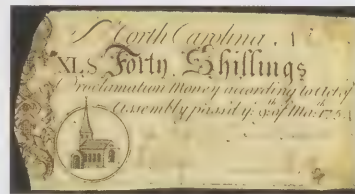 North Carolina.
XLS Forty Shillings
Proclamation Money according to Act of
Assembly pass'd yᵉ 9th of Mar.